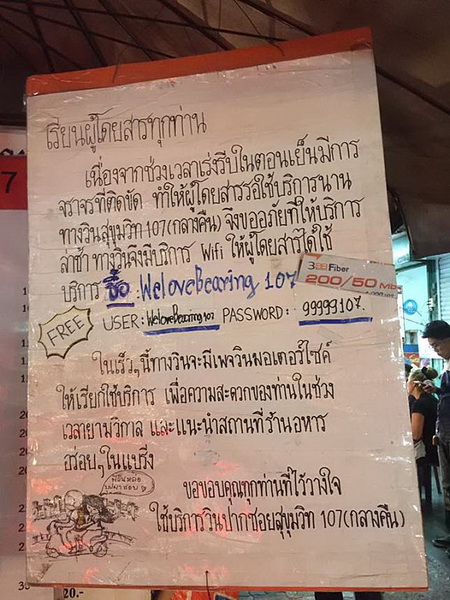 เรียนผู้โดยสารทุกท่าน
เนื่องจากช่วงเวลาเร่งรีบในตอนเย็นมีการ
จราจรที่ติดขัด ทำให้ผู้โดยสารรอใช้บริการนาน
ทางวินสุขุมวิท 107(กลางคืน) จึงขออภัยที่ให้บริการ
ล่าช้า ทางวินจึงมีบริการ Wifi ให้ผู้โดยสารได้ใช้
บริการ ชื่อ WeloveBearing 107
3BB Fiber
200/50 Mb
FREE
USER: WeloveBearing107 PASSWORD: 99993107.
ในเร็วๆนี้ทางวินจะมีเพจวินมอเตอร์ไซค์
ให้เรียกใช้บริการ เพื่อความสะดวกของท่านในช่วง
เวลายามวิกาล และแนะนำสถานที่ร้านอาหาร
อร่อยๆในแบริ่ง
ขอขอบคุณทุกท่านที่ไว้วางใจ
ใช้บริการวินปากซอยสุขุมวิท 107(กลางคืน)
7
20.-